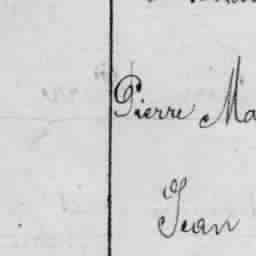 Pierre Ma
Jean